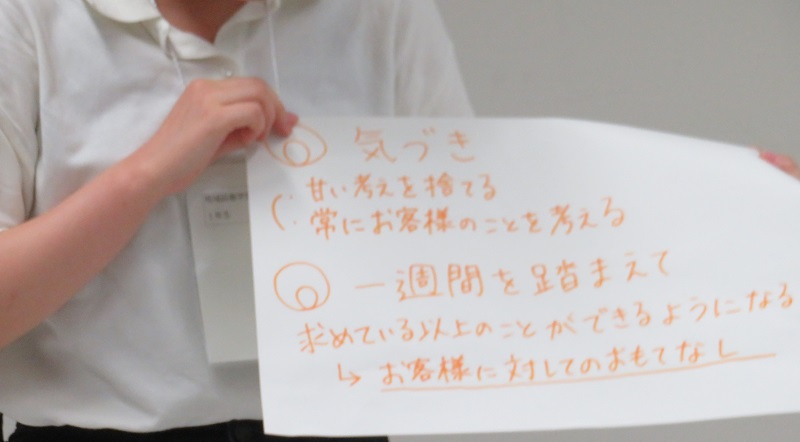 ◎ 気づき
・甘い考えを捨てる
・常にお客様のことを考える
◎ 一週間を踏まえて
求めている以上のことができるようになる
↳ お客様に対してのおもてなし